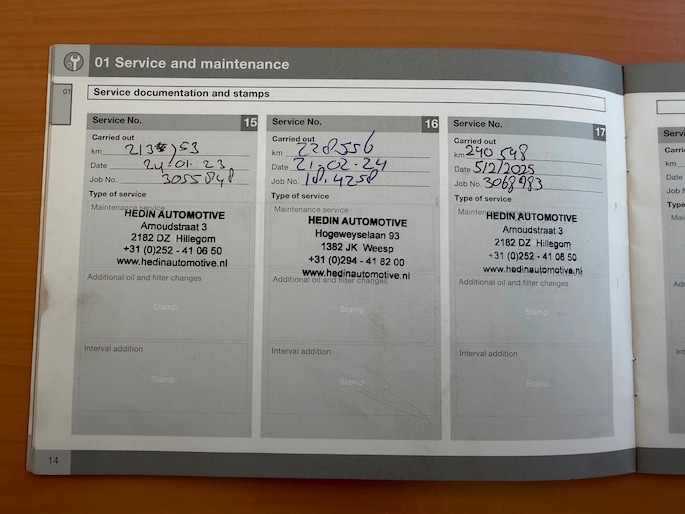 01 Service and maintenance
01
Service documentation and stamps
Service No. 15
Carried out
km
Date 24-01-23
Job No. 3055848
Type of service
Maintenance service
HEDIN AUTOMOTIVE
Arnoudstraat 3
2182 DZ Hillegom
+31 (0)252 - 41 06 50
www.hedinautomotive.nl
Additional oil and filter changes
Stamp
Interval addition
Stamp
Service No. 16
Carried out
km 228556
Date 21-02-24
Job No. 18.4258
Type of service
Maintenance service
HEDIN AUTOMOTIVE
Hogeweyselaan 93
1382 JK Weesp
+31 (0)294 - 41 82 00
www.hedinautomotive.nl
Additional oil and filter changes
Stamp
Interval addition
Stamp
Service No. 17
Carried out
km 240548
Date 5/2/2025
Job No. 3068983
Type of service
Maintenance service
HEDIN AUTOMOTIVE
Arnoudstraat 3
2182 DZ Hillegom
+31 (0)252 - 41 06 50
www.hedinautomotive.nl
Additional oil and filter changes
Stamp
Interval addition
Stamp
14
Servic
Carried
km
Date
Job No.